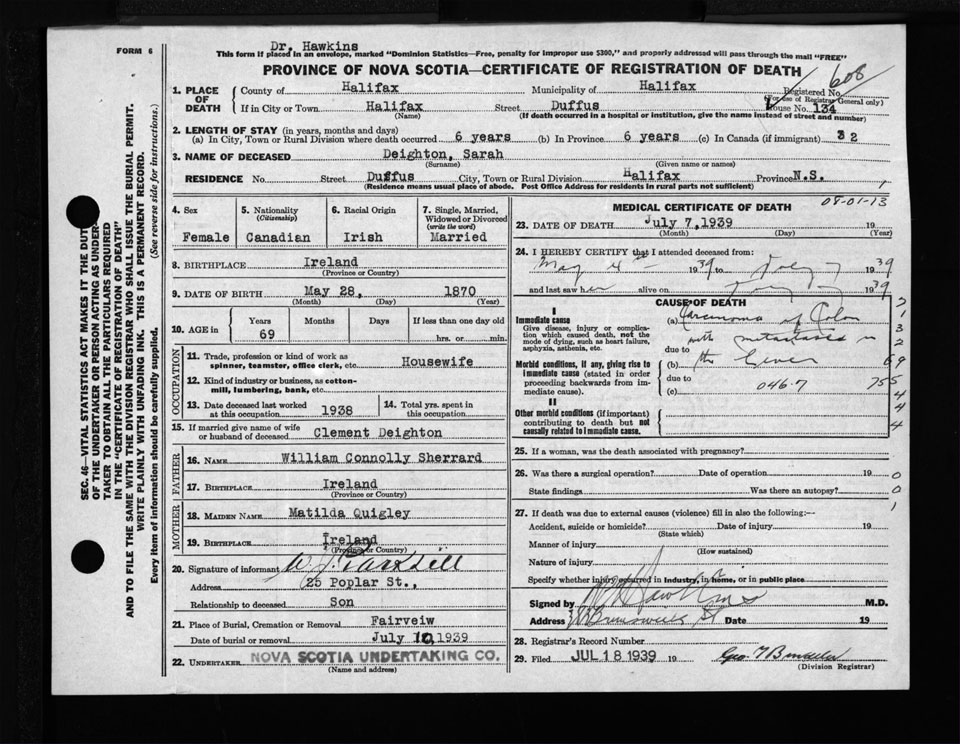 Dr. Hawkins
FORM 6
This form if placed in an envelope, marked "Dominion Statistics—Free, penalty for improper use $300," and properly addressed will pass through the mail "FREE"
PROVINCE OF NOVA SCOTIA—CERTIFICATE OF REGISTRATION OF DEATH
608
1. PLACE OF DEATH
County of Halifax Municipality of Halifax Registered No.
(For use of Registrar General only)
If in City or Town Halifax Street Duffus House No. 134
(Name) (If death occurred in a hospital or institution, give the name instead of street and number)
2. LENGTH OF STAY (in years, months and days)
(a) In City, Town or Rural Division where death occurred 6 years (b) In Province 6 years (c) In Canada (if immigrant) 32
3. NAME OF DECEASED Deighton, Sarah
(Surname) (Given name or names)
RESIDENCE No. Street Duffus City, Town or Rural Division Halifax Province N.S.
(Residence means usual place of abode. Post Office Address for residents in rural parts not sufficient)
1
4. Sex
Female
5. Nationality
(Citizenship)
Canadian
6. Racial Origin
Irish
7. Single, Married, Widowed or Divorced
(write the word)
Married
8. BIRTHPLACE Ireland
(Province or Country)
9. DATE OF BIRTH May 28, 1870
(Month) (Day) (Year)
10. AGE in
Years Months Days If less than one day old
69 hrs. or min.
OCCUPATION
11. Trade, profession or kind of work as spinner, teamster, office clerk, etc. Housewife
12. Kind of industry or business, as cotton-mill, lumbering, bank, etc.
13. Date deceased last worked at this occupation 1938
14. Total yrs. spent in this occupation
15. If married give name of wife or husband of deceased Clement Deighton
FATHER
16. NAME William Connolly Sherrard
17. BIRTHPLACE Ireland
(Province or Country)
MOTHER
18. MAIDEN NAME Matilda Quigley
19. BIRTHPLACE Ireland
(Province or Country)
20. Signature of informant
Address 25 Poplar St.,
Relationship to deceased Son
21. Place of Burial, Cremation or Removal Fairveiw
Date of burial or removal July 10, 1939
22. UNDERTAKER NOVA SCOTIA UNDERTAKING CO.
(Name and address)
MEDICAL CERTIFICATE OF DEATH
07-01-13
23. DATE OF DEATH July 7, 1939 19
(Month) (Day) (Year)
24. I HEREBY CERTIFY that I attended deceased from:
May 4th 1939 to July 7 1939
and last saw her alive on July 7 1939
CAUSE OF DEATH
I
Immediate cause
Give disease, injury or complication which caused death, not the mode of dying, such as heart failure, asphyxia, asthenia, etc.
(a) Carcinoma of Colon
with metastases in
due to
(b) the Liver
due to
(c) 046.7
Morbid conditions, if any, giving rise to immediate cause (stated in order proceeding backwards from immediate cause).
II
Other morbid conditions (if important) contributing to death but not causally related to immediate cause.
25. If a woman, was the death associated with pregnancy?
26. Was there a surgical operation? Date of operation 19
State findings Was there an autopsy?
27. If death was due to external causes (violence) fill in also the following:—
Accident, suicide or homicide? Date of injury 19
(State which)
Manner of injury
(How sustained)
Nature of injury
Specify whether injury occurred in industry, in home, or in public place
Signed by Hawkins M.D.
Address Brunswick St Date 19
28. Registrar's Record Number
29. Filed JUL 18 1939 19
(Division Registrar)
SEC. 46—VITAL STATISTICS ACT MAKES IT THE DUTY
OF THE UNDERTAKER OR PERSON ACTING AS UNDERTAKER TO OBTAIN ALL THE PARTICULARS REQUIRED
IN THE "CERTIFICATE OF REGISTRATION OF DEATH"
AND TO FILE THE SAME WITH THE DIVISION REGISTRAR WHO SHALL ISSUE THE BURIAL PERMIT.
WRITE PLAINLY WITH UNFADING INK. THIS IS A PERMANENT RECORD.
Every item of information should be carefully supplied. (See reverse side for instructions.)